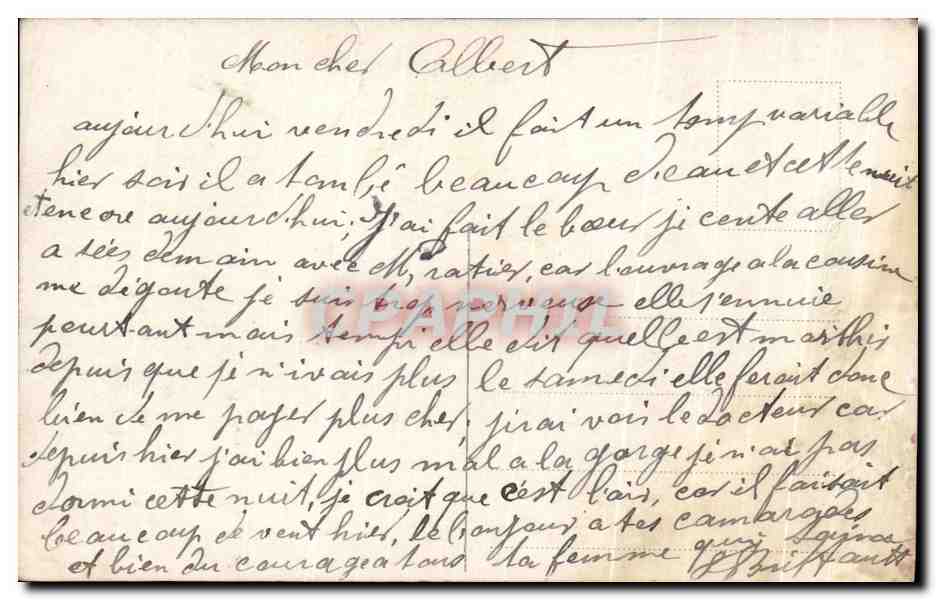 Mon cher Albert
aujourd'hui vendredi il fait un temp variable
hier soir il a tombé beaucoup d'eau et cette nuit
et encore aujourd'hui; J'ai fait le bœur je conte aller
a sées demain avec Mr ratier, car l'ouvrage a la cousine
me dégoute je suis trop nerveuse elle s'ennuie
pourtant mais temp elle dit quelle est
depuis que je n'i vais plus le samedi elle ferait donc
bien de me payer plus cher; j'irai voir le docteur car
depuis hier j'ai bien plus mal a la gorge je n'ai pas
dormi cette nuit, je croit que c'est l'air, car il faisait
beaucoup de vent hier, le bonjour a tes camarades
et bien du courage a tous ta femme qui
CPAPHIL